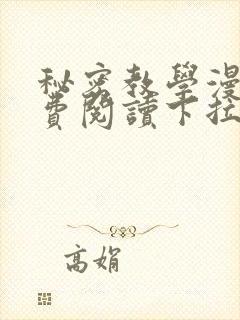 秘密教學漫
費閱讀下拉
高娟